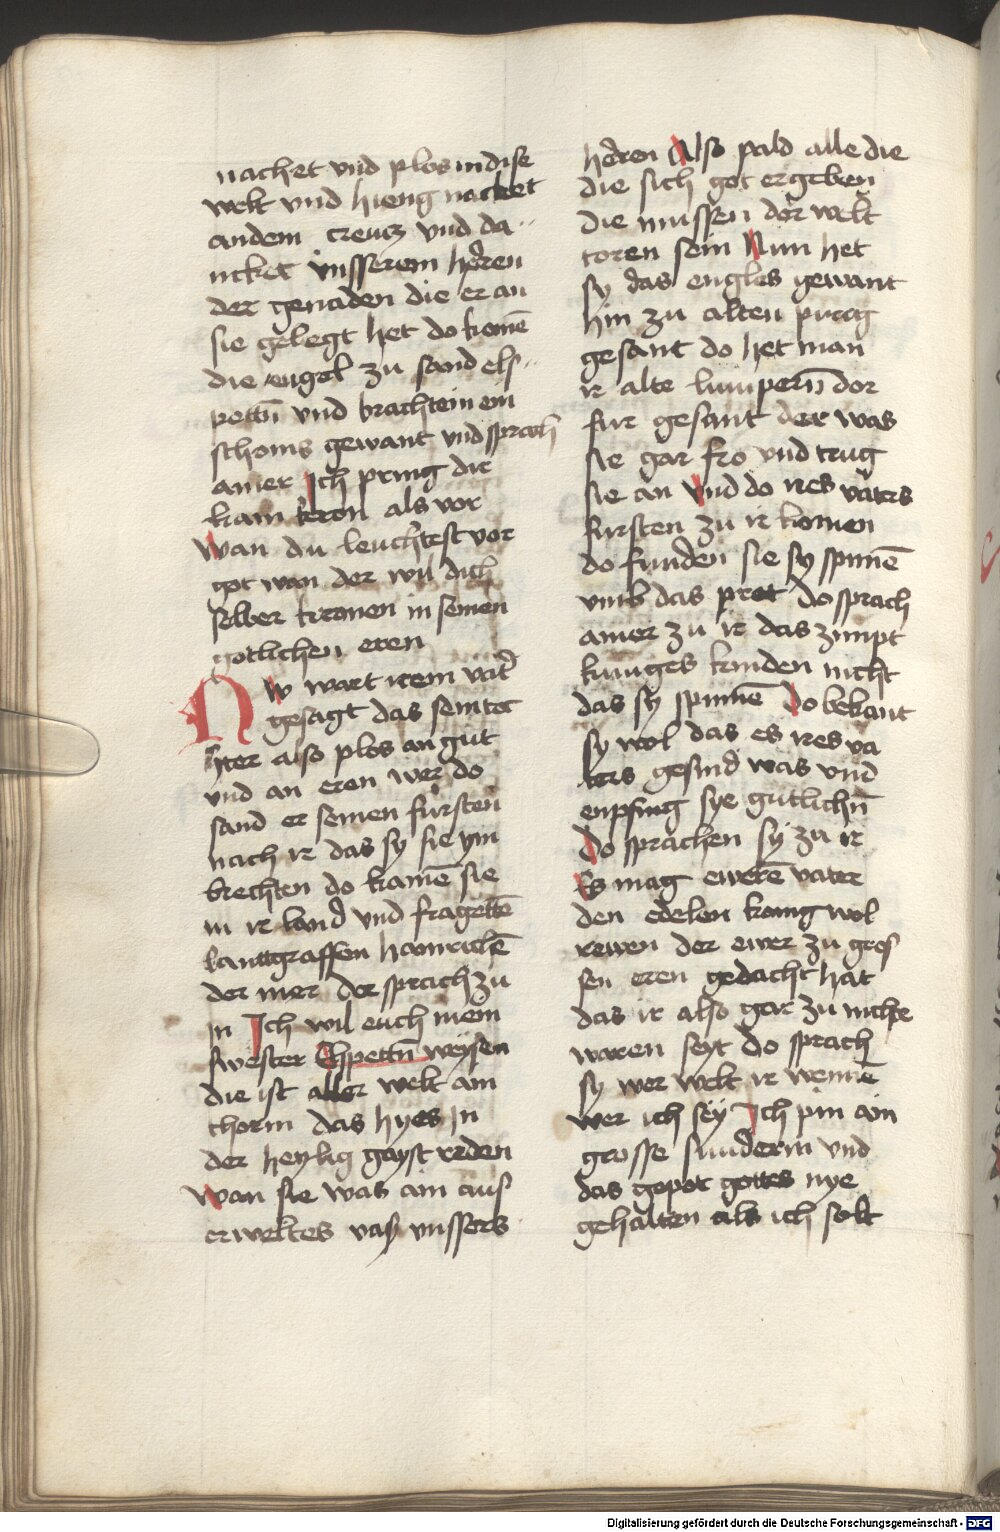 nachet vnd plos in dise
welt vnd hieng nacket
an dem creucz vnd da-
ncket vnsserem herren
der genaden die er an
sie gelegt het do komē
die engel zu sand els-
petñ vnd brachtein ein
schoms gewant vnd sprach
ainer Ich pring dir
kain kron als vor
wan du leuchtest vor
got wan der wil dich
selber kronen in seinen
gotlichen eren
Nw wart irem vat̓
gesagt das sein toc
hter also plos an gut
vnd an eren wer do
sand er seinen fürsten
nach ir das sy sie ym
brechten do kamē sie
in ir land vnd fragettē
lanttgraffen hainrichē
der mer der sprach zu
in Ich wil euch mein
swester Elspettñ weysen
die ist aller welt ain
thorin das hyes In
der heylig gayst reden
wan sie was ain aus
erweltes vas vnssers
herren Also pald alle die
die sich got ergeben
die mussen der welt
toren sein Nun het
sy das engles gewant
hin zu alten prag
gesant do het man
ir alte lumperñ dor
fur gesant der was
sie gar fro vnd trug
sie an Vnd do ires vaters
fursten zu ir komen
do funden sie sy spinē
vmb das prot Do sprach
ainer zu ir das zimpt
kuniges kinden nicht
das sy spinnē Do bekant
sy wol das es ires va
ters gesind was vnd
enpfing sye gutlichñ
Do sprachen sy zu ir
Es mag ewerē vater
den edelen konig wol
rewen der ewer zu gros
sen eren gedacht hat
das ir also gar zu nichte
waren seyt do sprach
sy wer welt ir wennē
wer ich sey Ich pin ain
grosse sunderin vnd
das gepot gottes nye
gehalten als ich solt
Digitalisierung gefördert durch die Deutsche Forschungsgemeinschaft - DFG